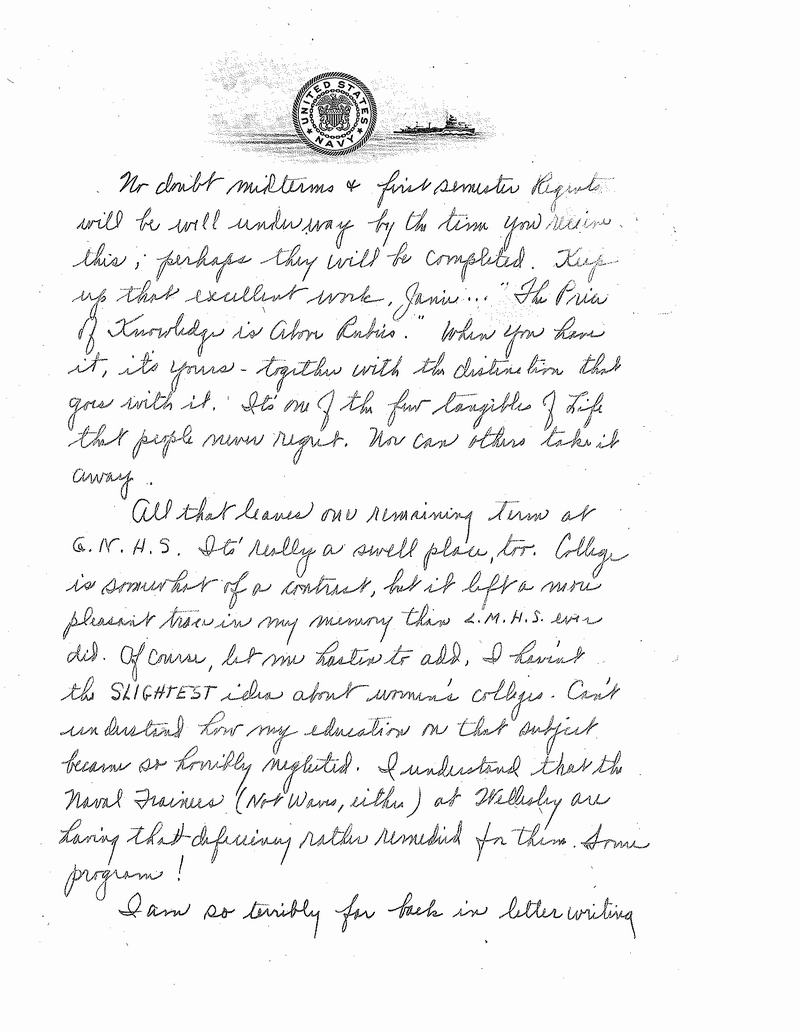 UNITED STATES NAVY
No doubt midterms & first semester Regents
will be well underway by the time you receive
this; perhaps they will be completed. Keep
up that excellent work, Janie... "The Price
of Knowledge is Above Rubies." When you have
it, it's yours - together with the distinction that
goes with it. It's one of the few tangibles of Life
that people never regret. Nor can others take it
away.
All that leaves one remaining term at
G.N.H.S. It's really a swell place, too. College
is somewhat of a contrast, but it left a more
pleasant trace in my memory than L.M.H.S. ever
did. Of course, let me hasten to add, I haven't
the SLIGHTEST idea about women's colleges. Can't
understand how my education on that subject
became so horribly neglected. I understand that the
Naval Trainees (Not Waves, either) at Wellesley are
having that deficiency rather remedied for them. Some
program!
I am so terribly far back in letter writing